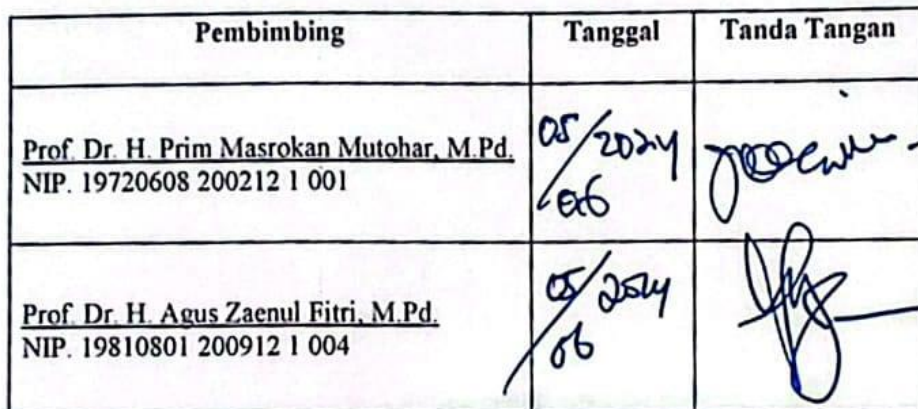 Pembimbing Tanggal Tanda Tangan
Prof. Dr. H. Prim Masrokan Mutohar, M.Pd.
NIP. 19720608 200212 1 001
05/2024
06
Prof. Dr. H. Agus Zaenul Fitri, M.Pd.
NIP. 19810801 200912 1 004
05/2024
06